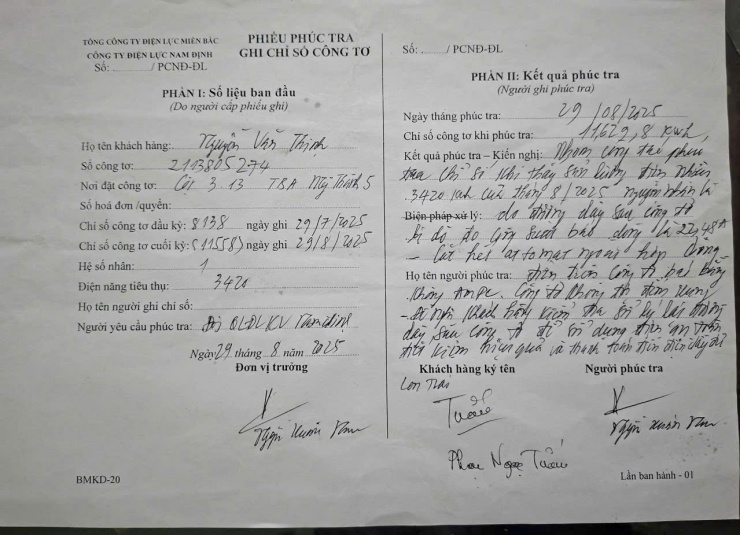 TỔNG CÔNG TY ĐIỆN LỰC MIỀN BẮC
CÔNG TY ĐIỆN LỰC NAM ĐỊNH
Số: ............/ PCNĐ-ĐL
PHIẾU PHÚC TRA
GHI CHỈ SỐ CÔNG TƠ
PHẦN I: Số liệu ban đầu
(Do người cấp phiếu ghi)
Họ tên khách hàng: Nguyễn Văn Thịnh
Số công tơ: 2113805274
Nơi đặt công tơ: Cột 3.13 TBA Mỹ Thịnh 5
Số hoá đơn /quyển:
Chỉ số công tơ đầu kỳ: 8138 ngày ghi 29/7/2025
Chỉ số công tơ cuối kỳ: (11558) ngày ghi 29/8/2025
Hệ số nhân: 1
Điện năng tiêu thụ: 3420
Họ tên người ghi chỉ số:
Người yêu cầu phúc tra: Đội QLĐLKV Nam Định
Ngày 29 tháng 8 năm 2025
Đơn vị trưởng
Số: ............/ PCNĐ-ĐL
PHẦN II: Kết quả phúc tra
(Người ghi phúc tra)
Ngày tháng phúc tra: 29/08/2025
Chỉ số công tơ khi phúc tra: 11,629,8 kWh
Kết quả phúc tra – Kiến nghị: Nhóm công tác phúc
tra chỉ số khi thấy sản lượng điện nhận
3420 kWh của tháng 8/2025 nguyên nhân là
Biện pháp xử lý: do đường dây sau công tơ
bị dò đo cộng suất báo dòng là 22,48A
- Cắt hết attomat ngoài hộp dòng
Họ tên người phúc tra: điện trên công tơ bai bằng
không Ampe. Công tơ không tự đếm xung
- Đề nghị khách hàng kiểm tra xử lý lại đường
dây sau công tơ để sử dụng điện an toàn
tiết kiệm hiệu quả và thanh toán tiền điện đầy đủ
Khách hàng ký tên
Người phúc tra
Con trai
Tuấn
Phạm Ngọc Tuấn
BMKD-20
Lần ban hành - 01